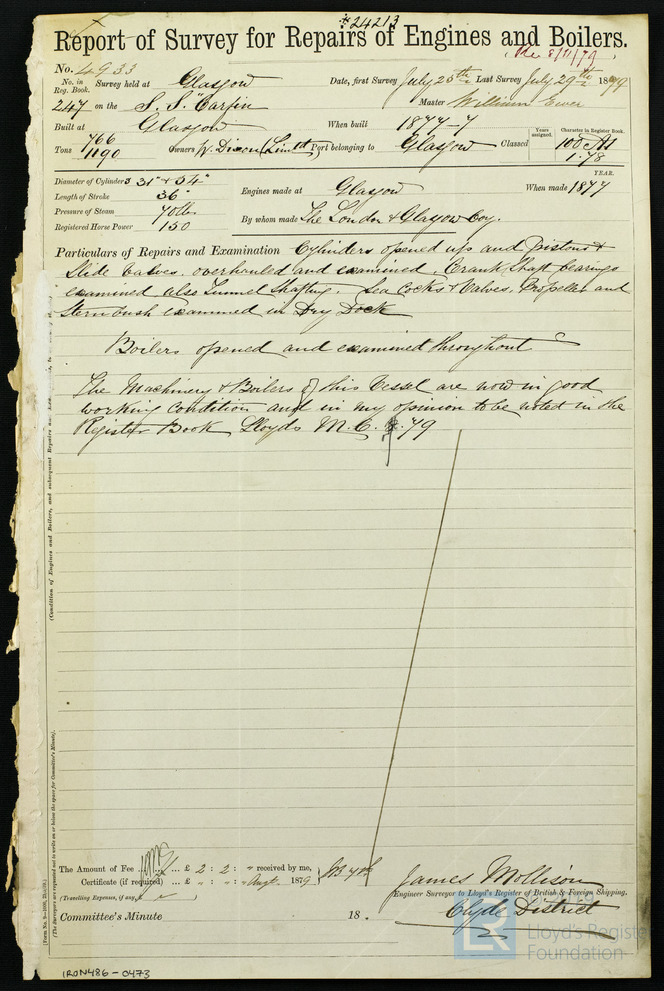 *24213
Report of Survey for Repairs of Engines and Boilers.
8/11/79
No. 4933
No. in Reg. Book. Survey held at Glasgow Date, first Survey July 25th Last Survey July 29th 1879
247 on the S.S. "Carfin" Master William
Built at Glasgow When built 1877-7
Tons 766 1190 Owners W. Dixon (Limtd) Port belonging to Glasgow Classed Years assigned. Character in Register Book. 100 A1 1.78
Diameter of Cylinders 31" + 54" Engines made at Glasgow YEAR. When made 1877
Length of Stroke 36"
Pressure of Steam 70 lbs By whom made The London & Glasgow Coy.
Registered Horse Power 150
Particulars of Repairs and Examination Cylinders opened up and pistons &
Slide Valves overhauled and examined, Crank Shaft bearings
examined also Tunnel Shafting. Sea Cocks & Valves, Propeller and
Stern bush examined in Dry Dock
Boilers opened and examined throughout
The Machinery & Boilers of this Vessel are now in good
working condition and in my opinion to be noted in the
Register Book Lloyds M.C. 79
(Condition of Engines and Boilers, and subsequent Repairs
(The Surveyors are requested not to write on or below the space for Committee's Minute).
The Amount of Fee ... £ 2 : 2 : " received by me,
Certificate (if required) ... £ " : " : " Augt 1879
(Travelling Expenses, if any, £
James Mollison
Engineer Surveyor to Lloyd's Register of British & Foreign Shipping.
Committee's Minute 18 .
Clyde District
LR Lloyd's Register Foundation
IRON486-0473